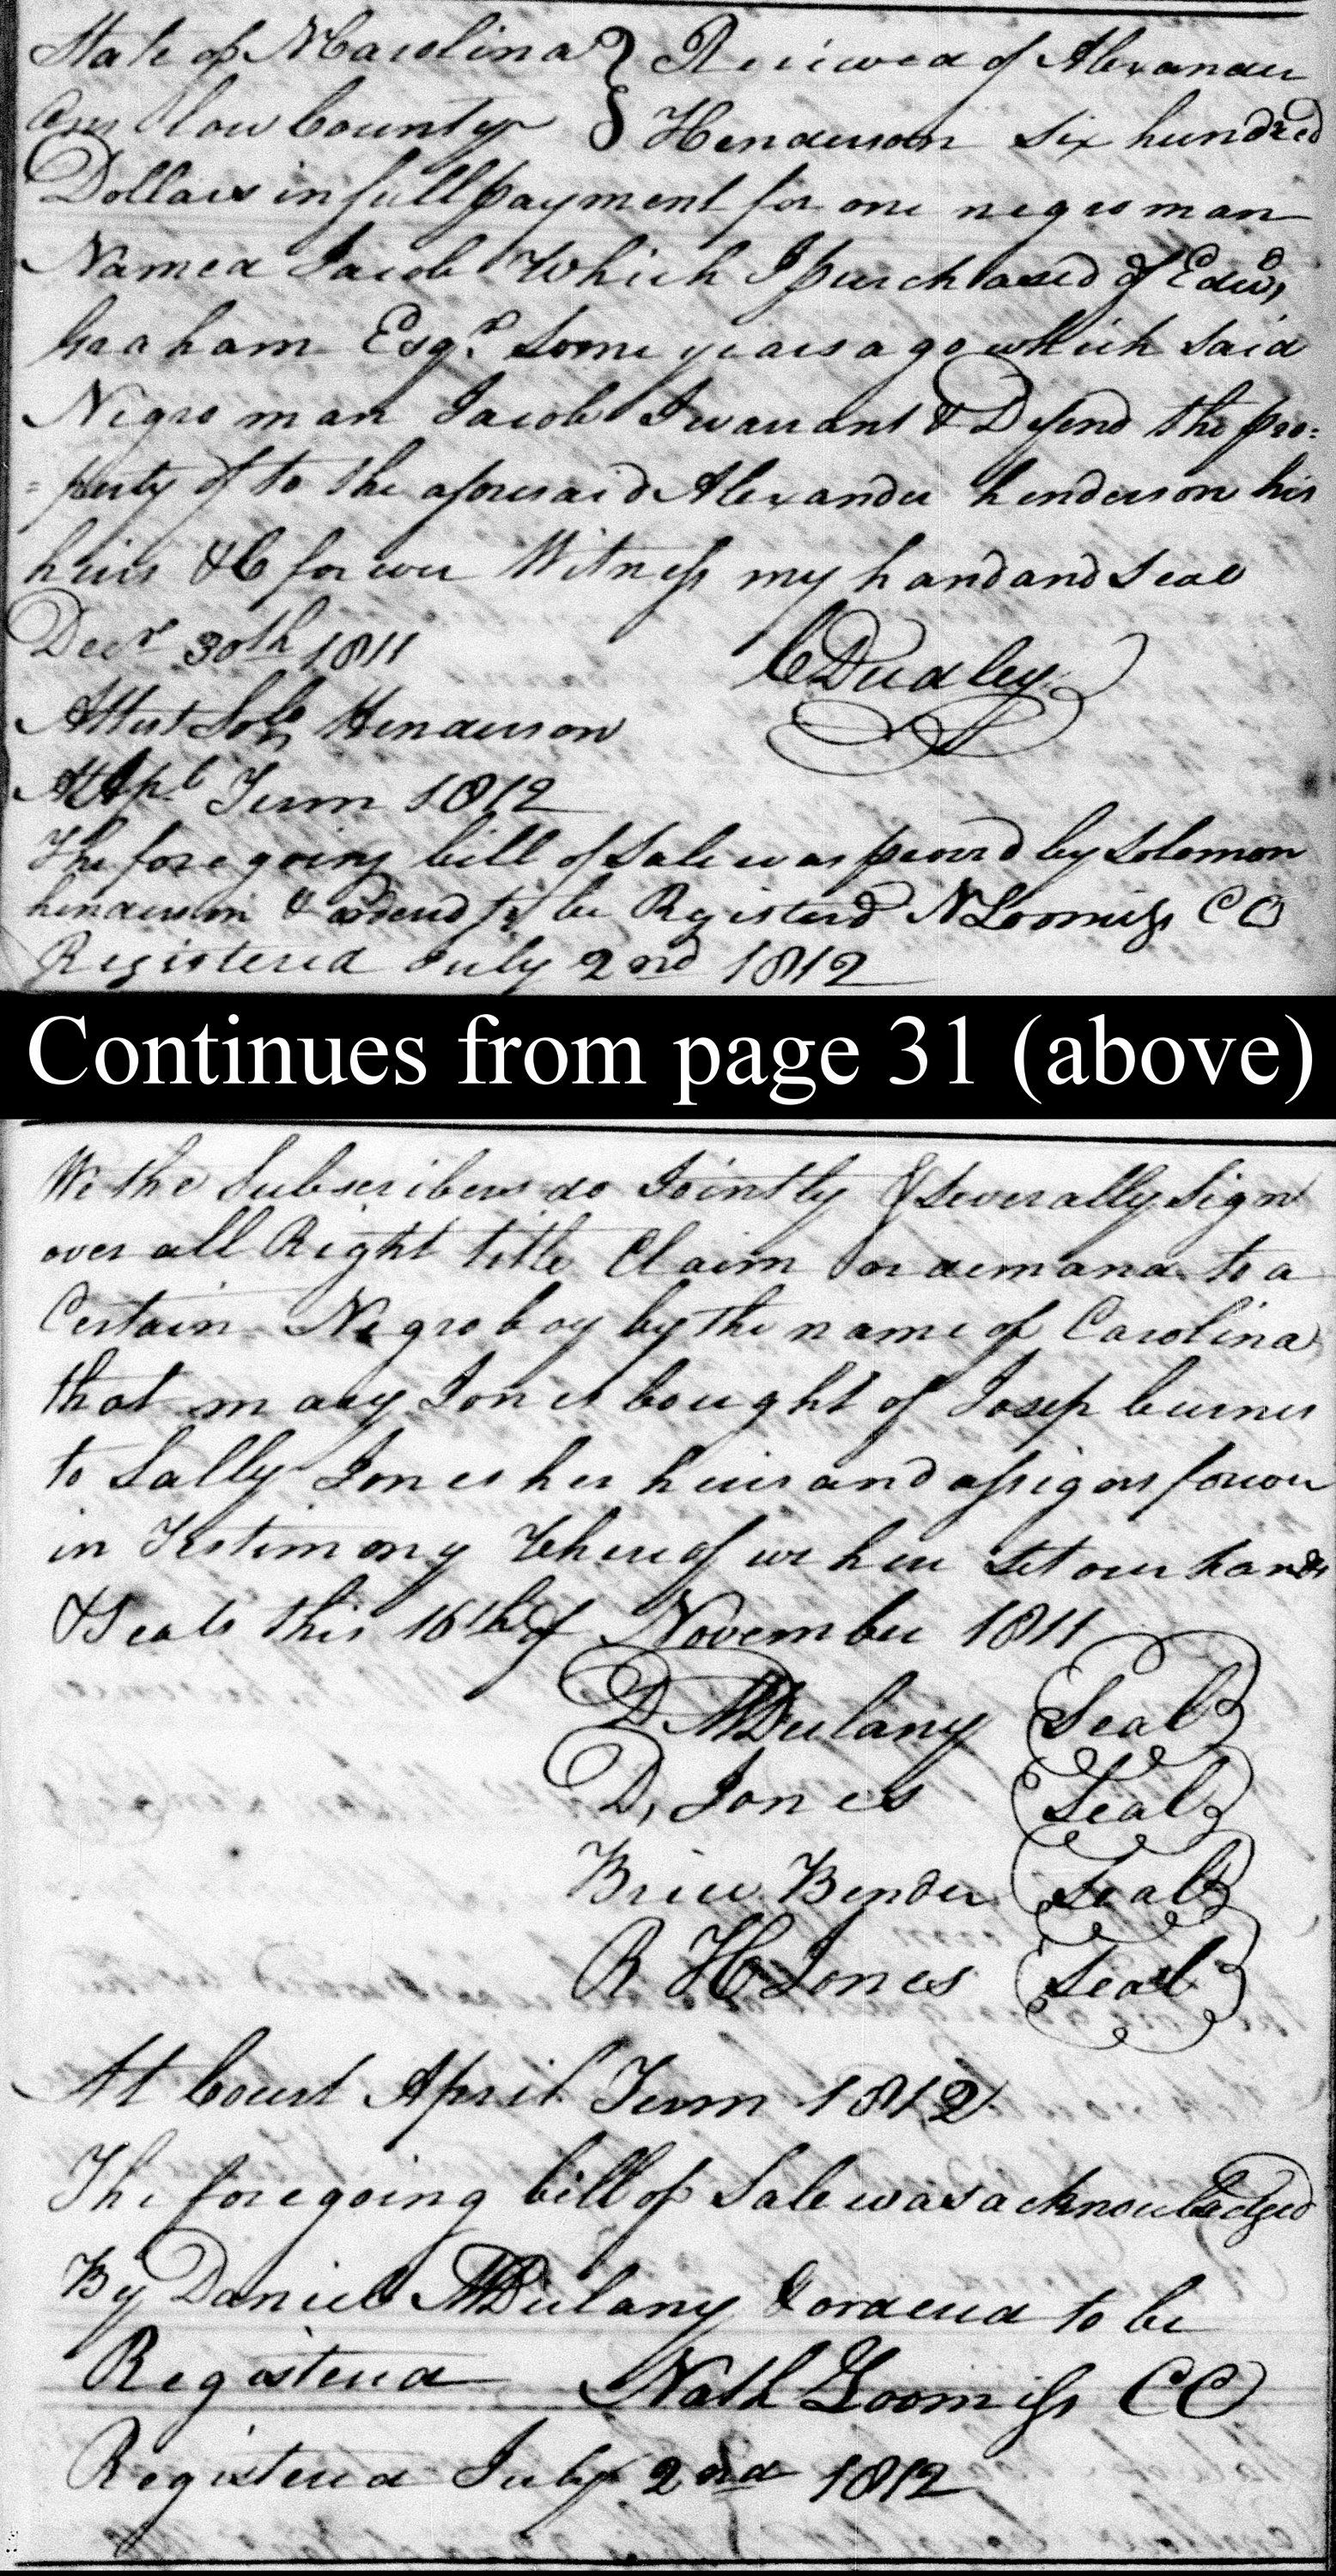 State of NCarolina } Received of Alexander
Onslow County } Henderson six hundred
Dollars in full payment for one negro man
Named Jacob Which I purchased of Edwd,
Graham Esqr. Some years ago which said
Negro man Jacob I warrant & Defend the pro=
=perty of to the aforesaid Alexander henderson his
heirs &C forever Witness my hand and Seal
Decr 30th 1811
C Dudley
Attest Sol Henderson
At Apl Term 1812
The foregoing bill of Sale was provd by Solomon
henderson & ordered to be Registerd N Loomiss CC
Registered July 2nd 1812
Continues from page 31 (above)
We the Subscribers do Jointly & Severally Sign
over all Right title Claim or demand to a
Certain Negro boy by the name of Carolina
that mary Jones bought of Josep burns
to Sally Jones her heirs and assigns forever
in Testimony Whereof we have set our hands
& Seals this 16th of November 1811
D MDulany Seal
D, Jones Seal
Brice Bender Seal
R H Jones Seal
At Court April Term 1812
The foregoing bill of Sale was acknowledged
By Daniel MDulany & ordered to be
Registered Nath Loomiss CC
Registered July 2nd 1812